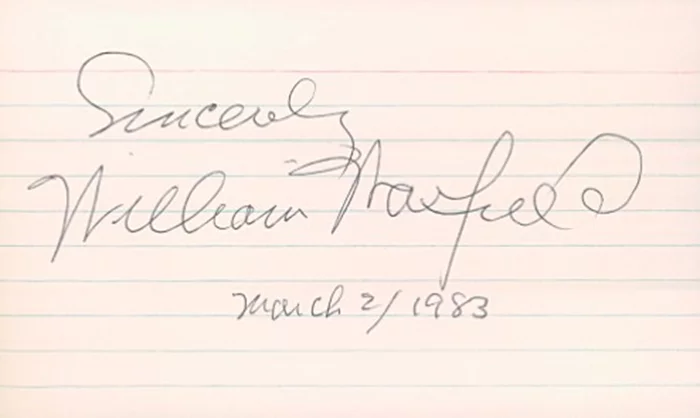 Sincerely
William Warfield
March 2/1983